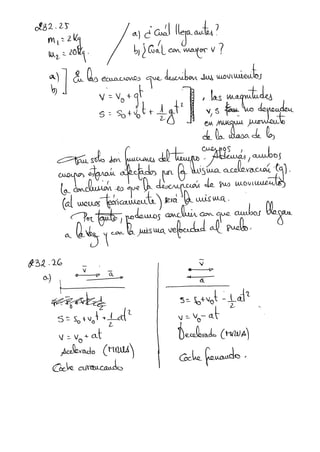 232.25
m₁ = 2 kg
m₂ = 20 kg.
a) ¿Cuál llega antes?
b) ¿Cuál con mayor v?
a)
b)
En las ecuaciones que describen sus movimientos
v = v₀ + gt
s = s₀ + v₀t + 1/2 gt²
, las magnitudes
v, s no dependen
en ningún momento
de la masa de los
cuerpos
Tan solo son funciones del tiempo. Además, ambos
cuerpos estarán afectados por la misma aceleración (g).
La conclusión es que la descripción de sus movimientos
(al menos teóricamente) será la misma.
Por tanto, podemos concluir con que ambos llegan
a la vez y con la misma velocidad al suelo.
232.26
a)
v
a
s = s₀ + v₀t + 1/2 at²
v = v₀ + at
Acelerado (MRUA)
Coche arrancando
v
a
s = s₀ + v₀t - 1/2 at²
v = v₀ - at
Decelerado (MRUA)
Coche frenando.